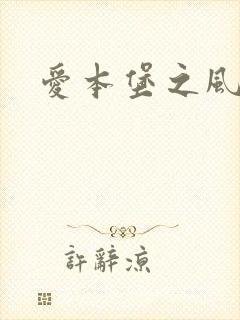 愛本堡之風
許辭涼